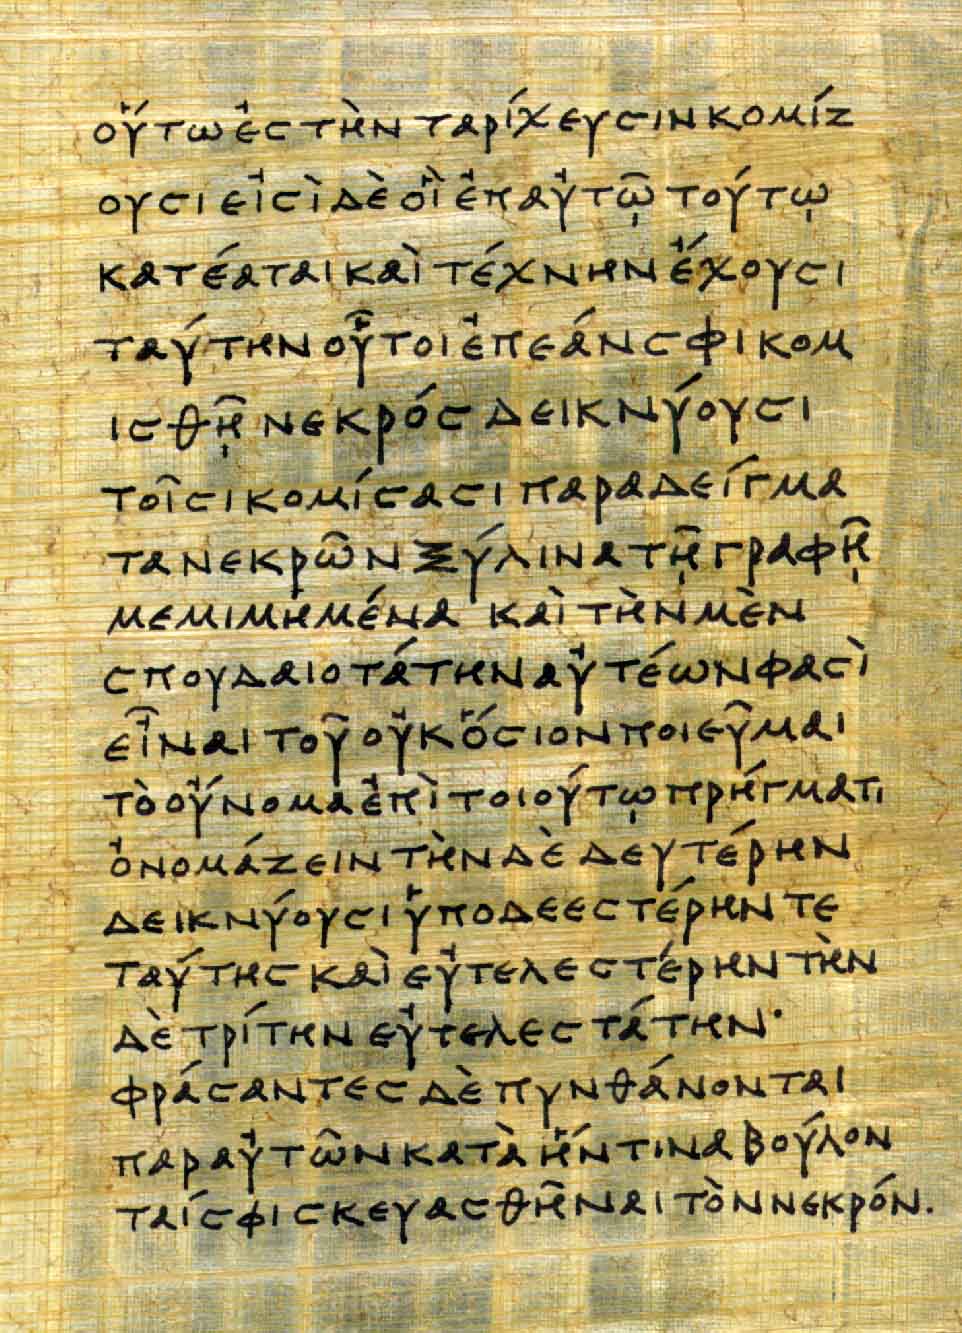 οὕτωἐςτὴνταρίχευσινκομίζ
ουσιεἰσὶδὲοἳἐπαὐτῷτούτῳ
κατέαταικαὶτέχνηνἔχουσι
ταύτηνοὗτοιἐπεάνσφικομ
ισθῇνεκρόςδεικνύουσι
τοῖσικομίσασιπαραδείγμα
τανεκρῶνξύλινατῇγραφῇ
μεμιμημένα καὶτὴνμὲν
σπουδαιοτάτηναὐτέωνφασὶ
εἶναιτοῦοὐκὅσιονποιεῦμαι
τὸοὔνομαἐπὶτοιούτῳπρήγματι
ὀνομάζειντὴνδὲδευτέρην
δεικνύουσιὑποδεεστέρηντε
ταύτηςκαὶεὐτελεστέρηντὴν
δὲτρίτηνεὐτελεστάτην·
φράσαντεςδὲπυνθάνονται
παραὐτῶνκατὰἥντιναβούλον
ταίσφισκευασθῆναιτὸννεκρόν.